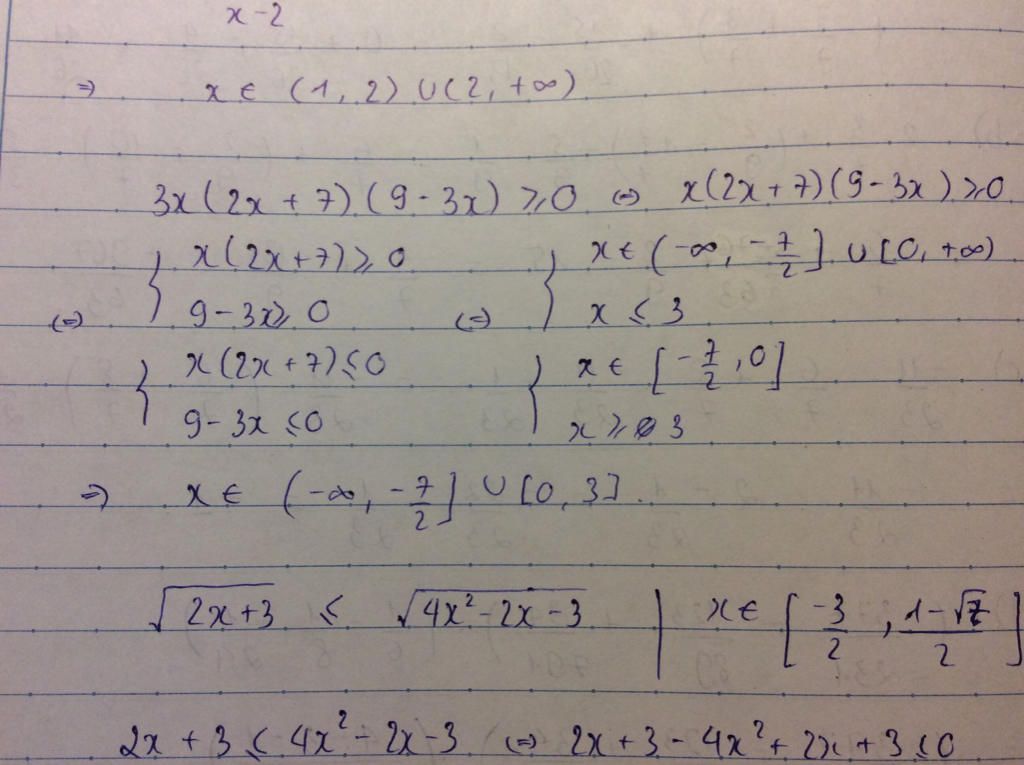 x-2
⇒ x ∈ (1, 2) ∪ (2, +∞)
3x(2x + 7)(9 - 3x) ≥ 0 ⇔ x(2x + 7)(9 - 3x) ≥ 0
{ x(2x+7) ≥ 0 { x ∈ (-∞, -7/2] ∪ [0, +∞)
⇔ 9 - 3x ≥ 0 ⇔ x ≤ 3
{ x(2x+7) ≤ 0 { x ∈ [-7/2, 0]
9 - 3x ≤ 0 x ≥ 3
⇒ x ∈ (-∞, -7/2] ∪ [0, 3].
√(2x+3) ≤ √(4x² - 2x - 3) | x ∈ [-3/2, (1-√7)/2]
2x + 3 ≤ 4x² - 2x - 3 ⇔ 2x + 3 - 4x² + 2x + 3 ≤ 0